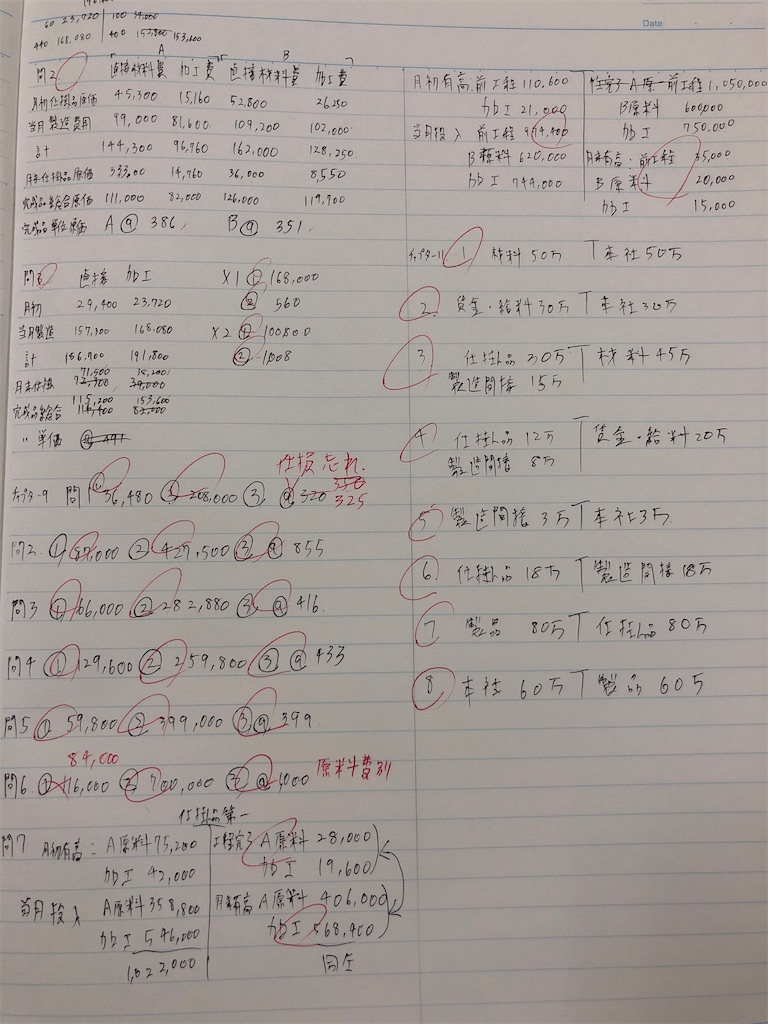 60 23,720 | 100 34,000
440 168,080 | 400 153,800 153,600
A B
問2 直接材料費 加工費 直接材料費 加工費
月初仕掛品原価 45,300 15,160 52,800 26,250
当月製造費用 99,000 81,600 109,200 102,000
計 144,300 96,760 162,000 128,250
月末仕掛品原価 33,300 14,760 36,000 8,550
完成品総合原価 111,000 82,000 126,000 119,700
完成品単位原価 A @ 386 B @ 351
問3 直接 加工 X1 ① 168,000
月初 29,400 23,720 ② 560
当月製造 157,300 168,080 X2 ① 100800
計 186,700 191,800 ② 1,008
71,500 38,200
月末仕掛 72,300 39,000
115,200 153,600
完成品総合 114,400 82,000
〃 単価 @ 491
仕損忘れ.
チャプター9 問1 ① 36,480 ② 208,000 ③ @ 320 350 325
問2. ① 87,000 ② 427,500 ③ @ 855
問3 ① 66,000 ② 282,880 ③ @ 416
問4 ① 129,600 ② 259,800 ③ @ 433
問5 ① 59,800 ② 399,000 ③ @ 399
84,000
問6. ① 76,000 ② 700,000 ③ @ 1,000 原料費別
仕掛品第一
問7 月初有高: A原料 75,200 | 工程完了 A原料 28,000
加工 42,000 | 加工 19,600
当月投入 A原料 358,800 | 月末有高 A原料 406,000
加工 546,000 | 加工 568,400
1,022,000 | 同左
月初有高:前工程 110,600 | 仕完了 A原 前工程 1,050,000
加工 21,000 | B原料 600,000
当月投入 前工程 974,400 | 加工 750,000
B原料 620,000 | 月末有高・前工程 35,000
加工 744,000 | B原料 20,000
加工 15,000
チャプター11 1 材料 50万 | 本社 50万
2. 賃金・給料 30万 | 本社 30万
3 仕掛品 30万 | 材料 45万
製造間接 15万
4 仕掛品 12万 | 賃金・給料 20万
製造間接 8万
5 製造間接 3万 | 本社 3万.
6. 仕掛品 18万 | 製造間接 18万
7 製品 80万 | 仕掛品 80万
8 本社 60万 | 製品 60万
Date